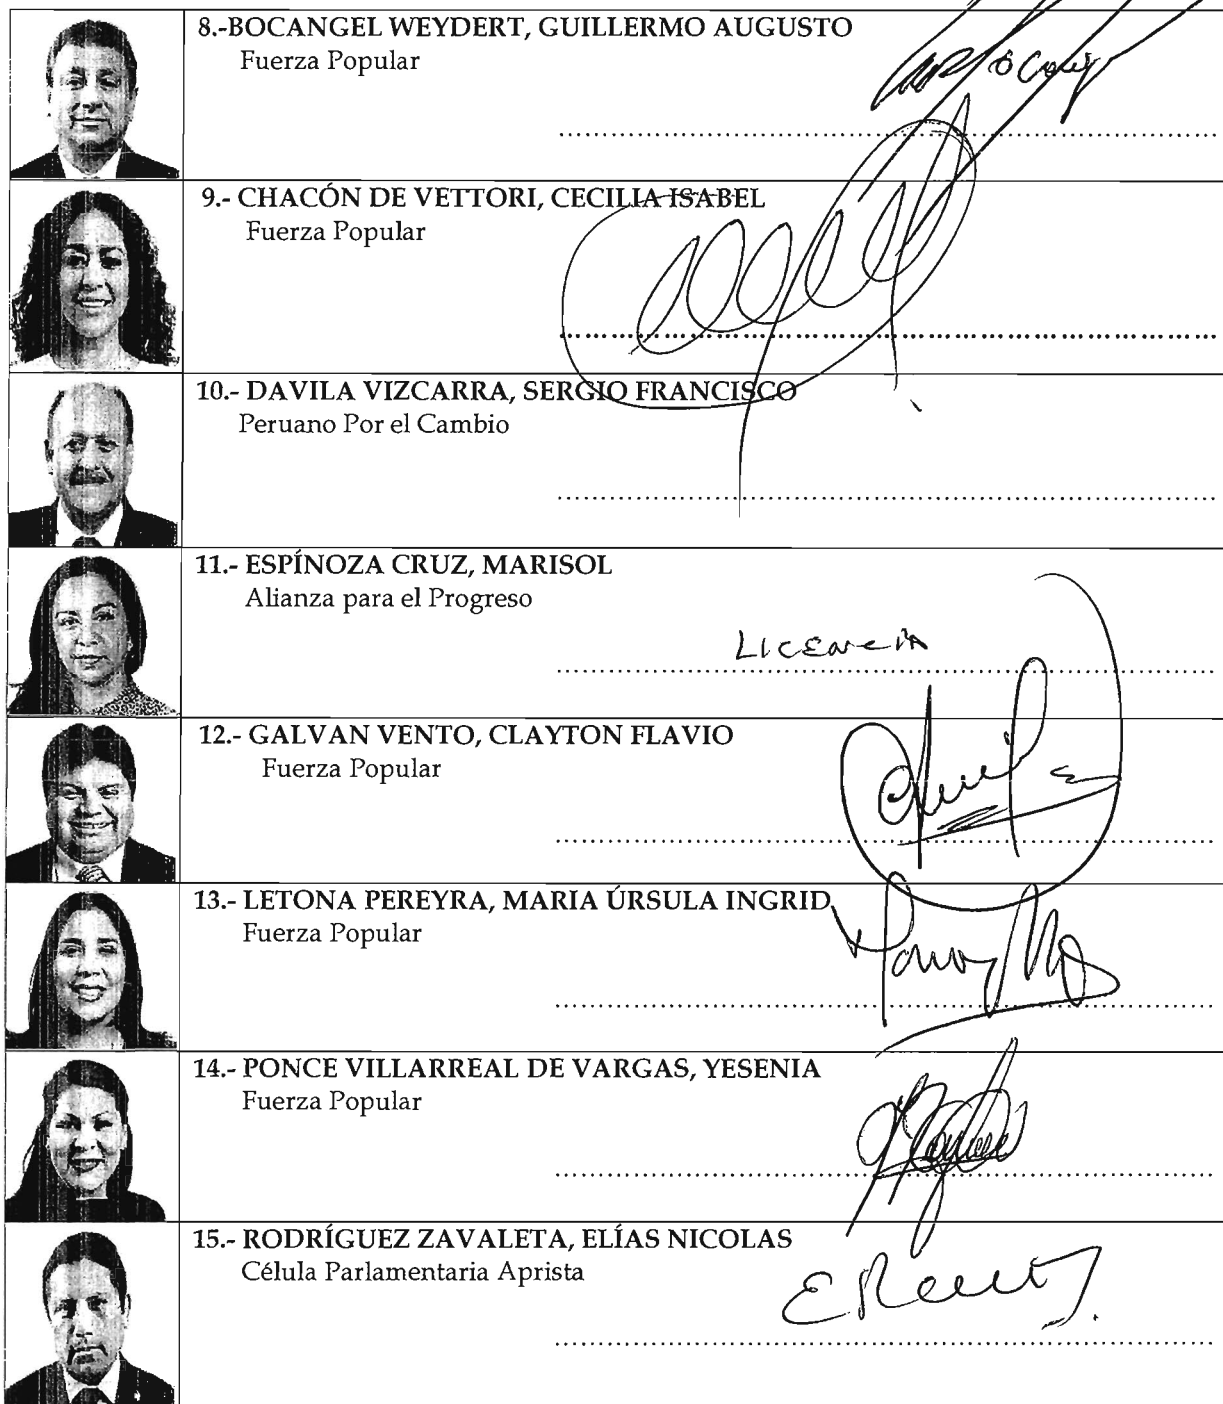 8.-BOCANGEL WEYDERT, GUILLERMO AUGUSTO
Fuerza Popular
9.- CHACÓN DE VETTORI, CECILIA ISABEL
Fuerza Popular
10.- DAVILA VIZCARRA, SERGIO FRANCISCO
Peruano Por el Cambio
11.- ESPÍNOZA CRUZ, MARISOL
Alianza para el Progreso
LICENCIA
12.- GALVAN VENTO, CLAYTON FLAVIO
Fuerza Popular
13.- LETONA PEREYRA, MARIA ÚRSULA INGRID
Fuerza Popular
14.- PONCE VILLARREAL DE VARGAS, YESENIA
Fuerza Popular
15.- RODRÍGUEZ ZAVALETA, ELÍAS NICOLAS
Célula Parlamentaria Aprista